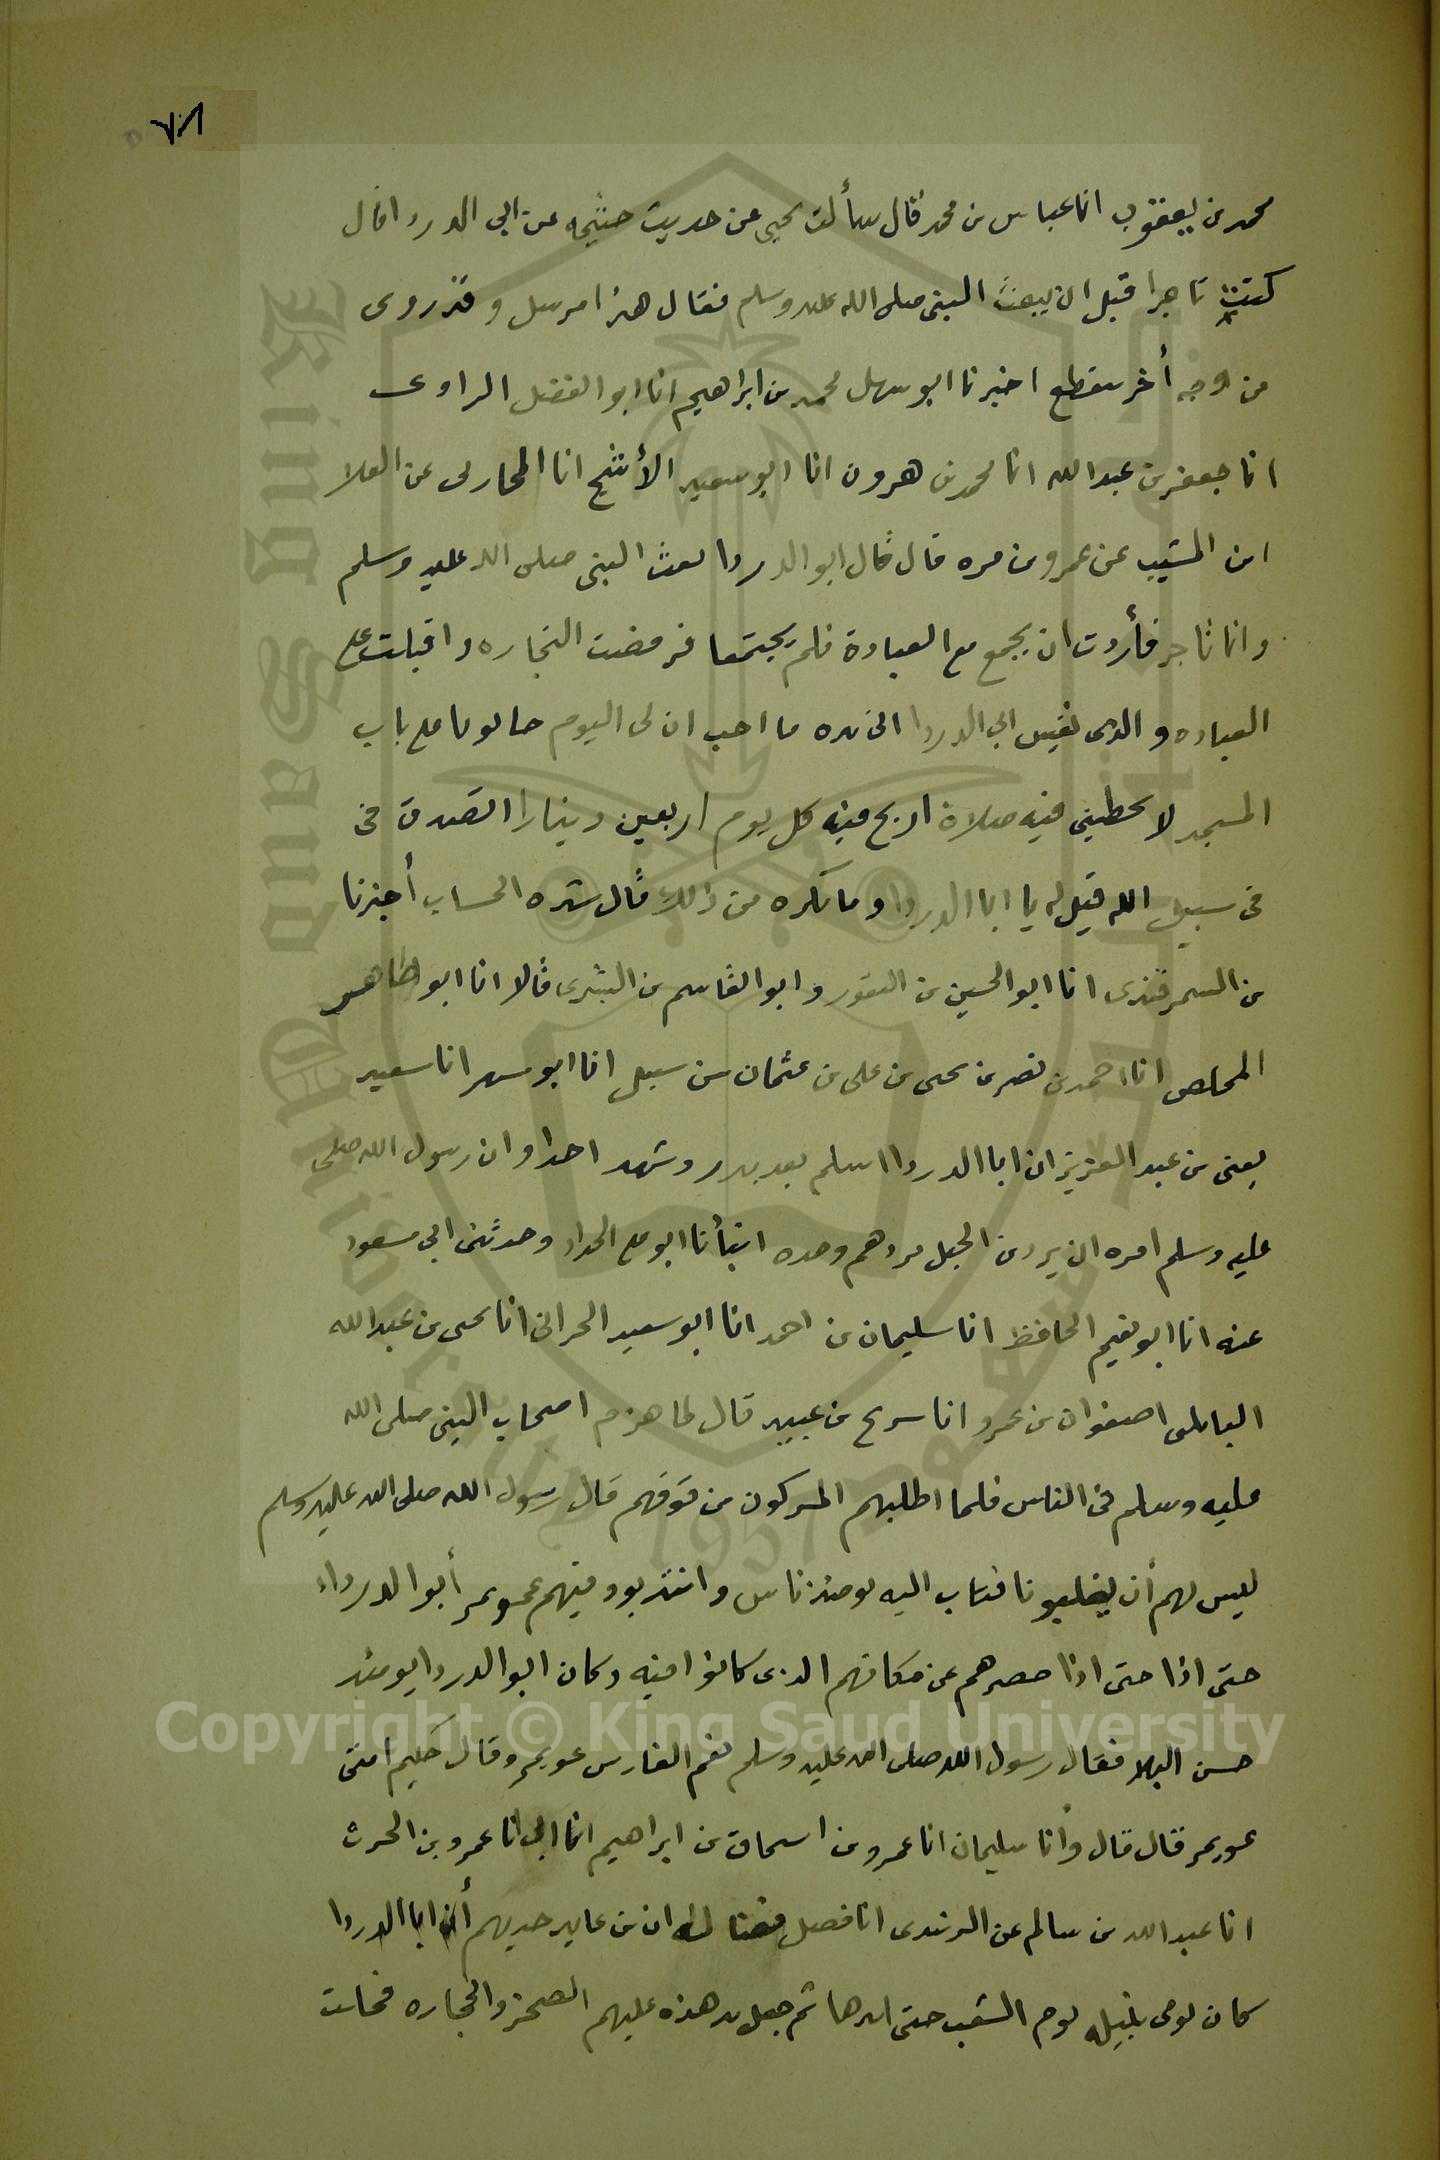 ٧٠٨
محمد بن يعقوب انا عباس بن محمد قال سألت يحيى عن حديث خثيمه عن ابي الدردا قال
كنت تاجرا قبل ان يبعث النبى صلى الله عليه وسلم فقال هذا مرسل وقد روى
من وجه أخر منقطع اخبرنا ابو سهل محمد بن ابراهيم انا ابو الفضل الراوى
انا جعفر بن عبد الله انا محمد بن هرون انا ابو سعيد الأشج انا المحاربى عن العلا
ابن المسيب عن عمرو بن مره قال قال ابو الدردا بعث النبى صلى الله عليه وسلم
وانا تاجر فأردت ان يجمع مع العبادة فلم يجتمعا فرفضت التجاره واقبلت على
العباده والذى نفس ابي الدردا الى يده ما احب ان لى اليوم حانوتا على باب
المسجد لا يخطينى فيه صلاة اربح فيه كل يوم اربعين دينارا اتصدق فى
فى سبيل الله قيل له يا ابا الدردا وما تكره من ذلك قال شده الحساب أخبرنا
بن السمرقندى انا ابو الحسين بن النقور وابو القاسم بن البشرى قالا انا ابو الطاهر
المخلص انا احمد بن نصر بن يحيى بن على بن عثمان بن سبل انا ابو سهر انا سعيد
يعنى بن عبد العزيز ان ابا الدردا اسلم بعد بدر وشهد احدا وان رسول الله صلى
عليه وسلم امره ان يرد من الجبل فردهم وحده انبأنا ابو على الحداد وحدثنى ابي مسعود
عنه انا ابو نعيم الحافظ انا سليمان بن احمد انا ابو سعيد الحرانى انا يحيى بن عبد الله
البابلى اصفوان بن عمرو انا سريح بن عبيد قال لما هزم اصحاب النبى صلى الله
عليه وسلم فى الناس فلما اطلبهم المشركون من فوقهم قال رسول الله صلى الله عليه وسلم
ليس لهم أن يغلبونا فتاب اليه يومئذ ناس وانتدبوا وفيهم عويمر أبوا الدرداء
حتى اذا حتى اذا حصرهم عن مكانهم الذى كانوا فيه وكان ابوا الدردا يومئذ
حسن البلا فقال رسول الله صلى الله عليه وسلم نعم الفارس عويمر وقال حكيم امتى
عويمر قال قال وأنا سليمان انا عمرو بن اسحاق بن ابراهيم انا ابى انا عمرو بن الحرث
انا عبد الله بن سالم عن الزبيدى انا فضل ان بن عايد حديهم أن ابا الدردا
كان يومى بنبله يوم الشعب حتى ثم جعل هذه عليهم الصخر والحجاره فحانت
Copyright © King Saud University
King Saud University
1957